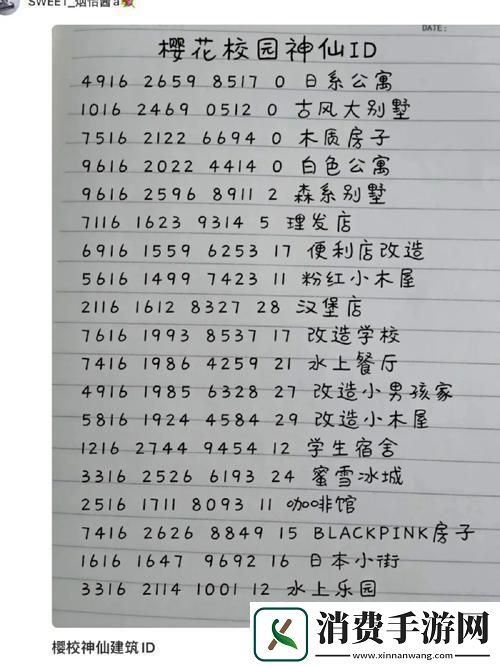 SWEET_烟怡酱a
DATE:
樱花校园神仙ID
4916 2659 8517 0 日系公寓
1016 2469 0512 0 古风大别墅
7516 2122 6694 0 木质房子
9616 2022 4414 0 白色公寓
9616 2596 8911 2 森系别墅
7116 1623 9314 5 理发店
6916 1559 6253 17 便利店改造
5616 1499 7423 11 粉红小木屋
2116 1612 8327 28 汉堡店
7616 1993 8537 17 改造学校
7416 1986 4259 21 水上餐厅
4916 1985 6328 27 改造小男孩家
5816 1924 4584 29 改造小木屋
1216 2744 9454 12 学生宿舍
3316 2526 6193 24 蜜雪冰城
2516 1711 8093 11 咖啡馆
7416 2626 8849 15 BLACKPINK房子
1616 1647 9692 16 日本小街
3316 2114 1001 12 水上乐园
樱校神仙建筑ID
消费手游网
www.xinnanwang.com